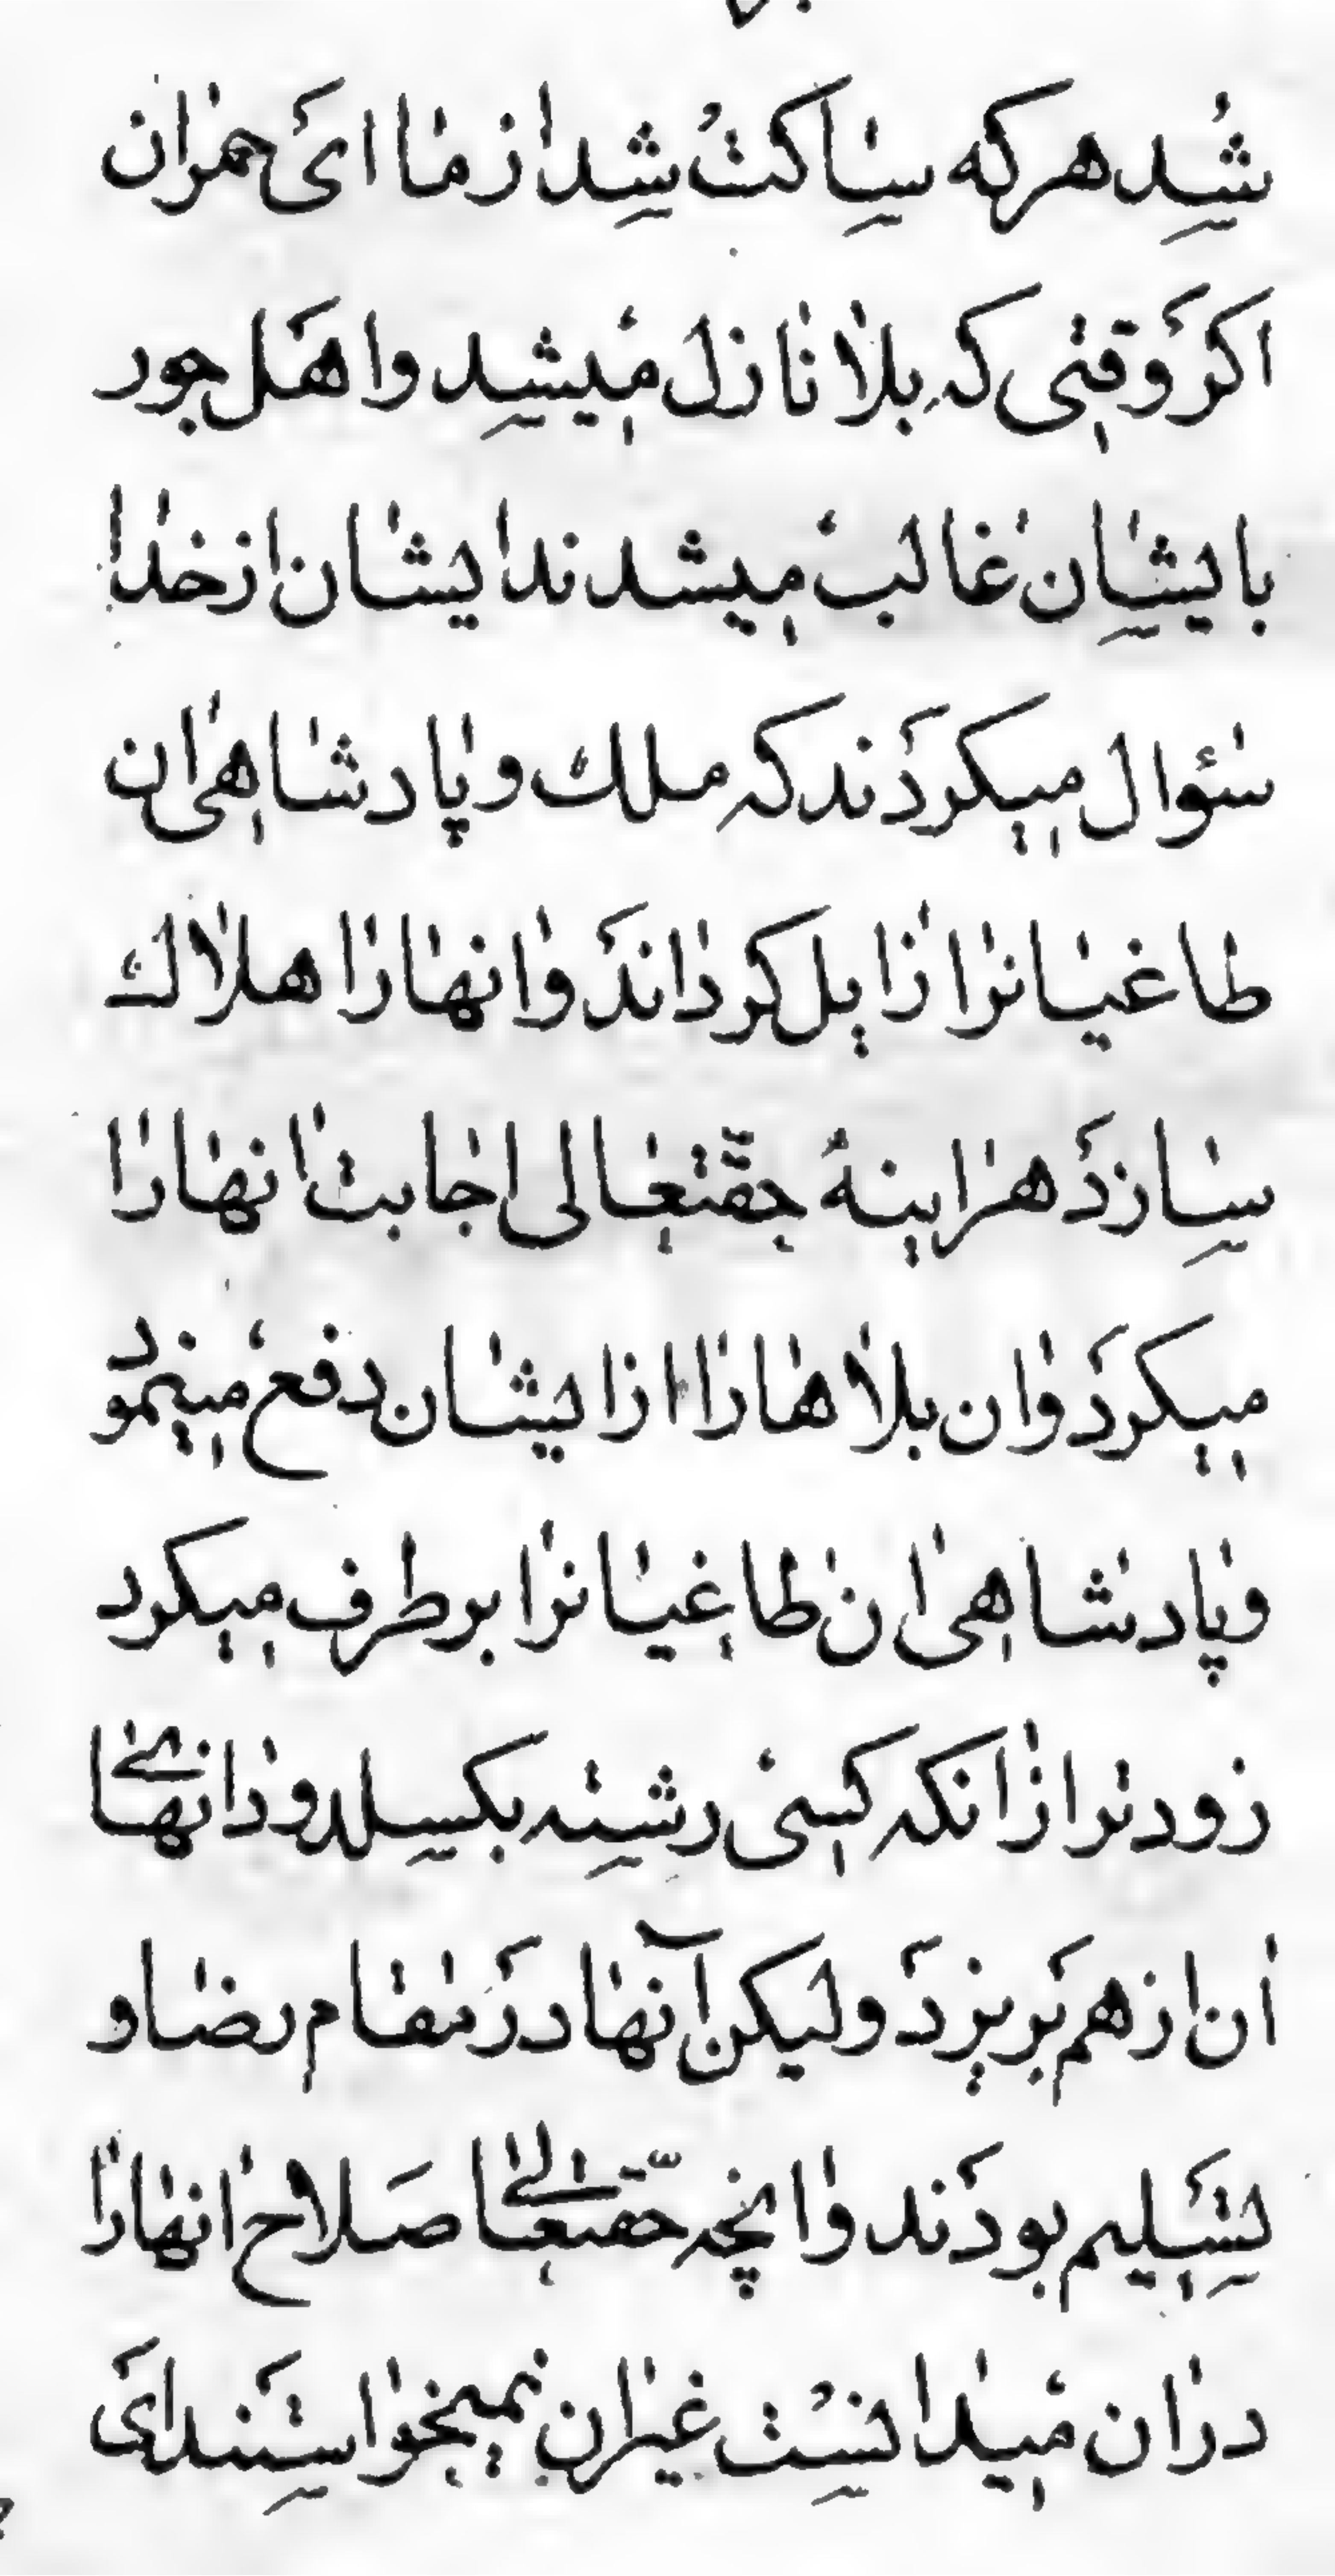 شد هر که ساکت شد از ما ای حمران
اکر وقتی که بلا نازل میشد و اهل جور
با یشان غالب میشدند ایشان از خدا
سؤال میکردند که ملک و پادشاهی ان
طاغیانرا زایل کرداند و انها را هلاک
سازد هراینه حقتعالی اجابت انها را
میکرد و ان بلاها را از ایشان دفع مینمود
و پادشاهی ان طاغیانرا بر طرف میکرد
زودتر از انکه کسی رشته بکسلد و دانهای
ان از هم بریزد و لیکن آنها در مقام رضا و
تسلیم بودند و انچه حقتعالی صلاح انها را
در ان میدانست غیر ان نمیخواستند ای